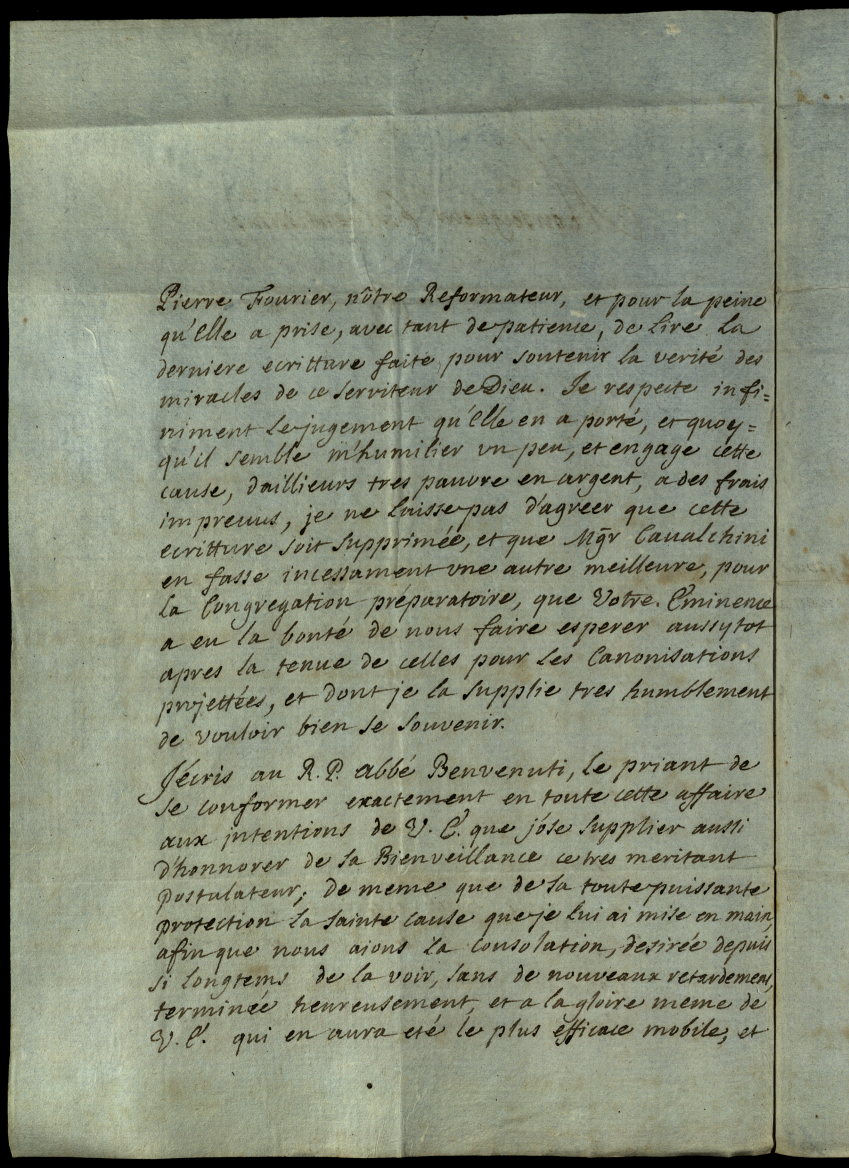 Pierre Fourier, nôtre Reformateur, et pour la peine
qu'Elle a prise, avec tant de patience, de lire la
derniere ecritture faite pour soutenir la verité des
miracles de ce serviteur de Dieu. Je respecte infi=
niment le jugement qu'Elle en a porté, et quoy=
qu'il semble m'humilier vn peu, et engage cette
cause, d'aillieurs tres pauvre en argent, a des frais
impreuus, je ne laisse pas d'agreer que cette
ecritture soit supprimée, et que Mgr Caualchini
en fasse incessament vne autre meilleure, pour
la Congregation préparatoire, que Votre Eminence
a eu la bonté de nous faire esperer aussytot
apres la tenue de celles pour les Canonisations
projettées, et dont je la supplie tres humblement
de vouloir bien se souvenir.
J'écris au R. P. Abbé Benvenuti, le priant de
se conformer exactement en toute cette affaire
aux jntentions de V. E. que j'óse supplier aussi
d'honnorer de sa Bienveillance ce tres meritant
Postulateur; de meme que de sa toute puissante
protection la sainte cause que je lui ai mise en main,
afin que nous aions la consolation, desirée depuis
si longtems de la voir, sans de nouveaux retardemens,
terminée heureusement, et a la gloire meme de
V. E. qui en aura eté le plus efficace mobile, et